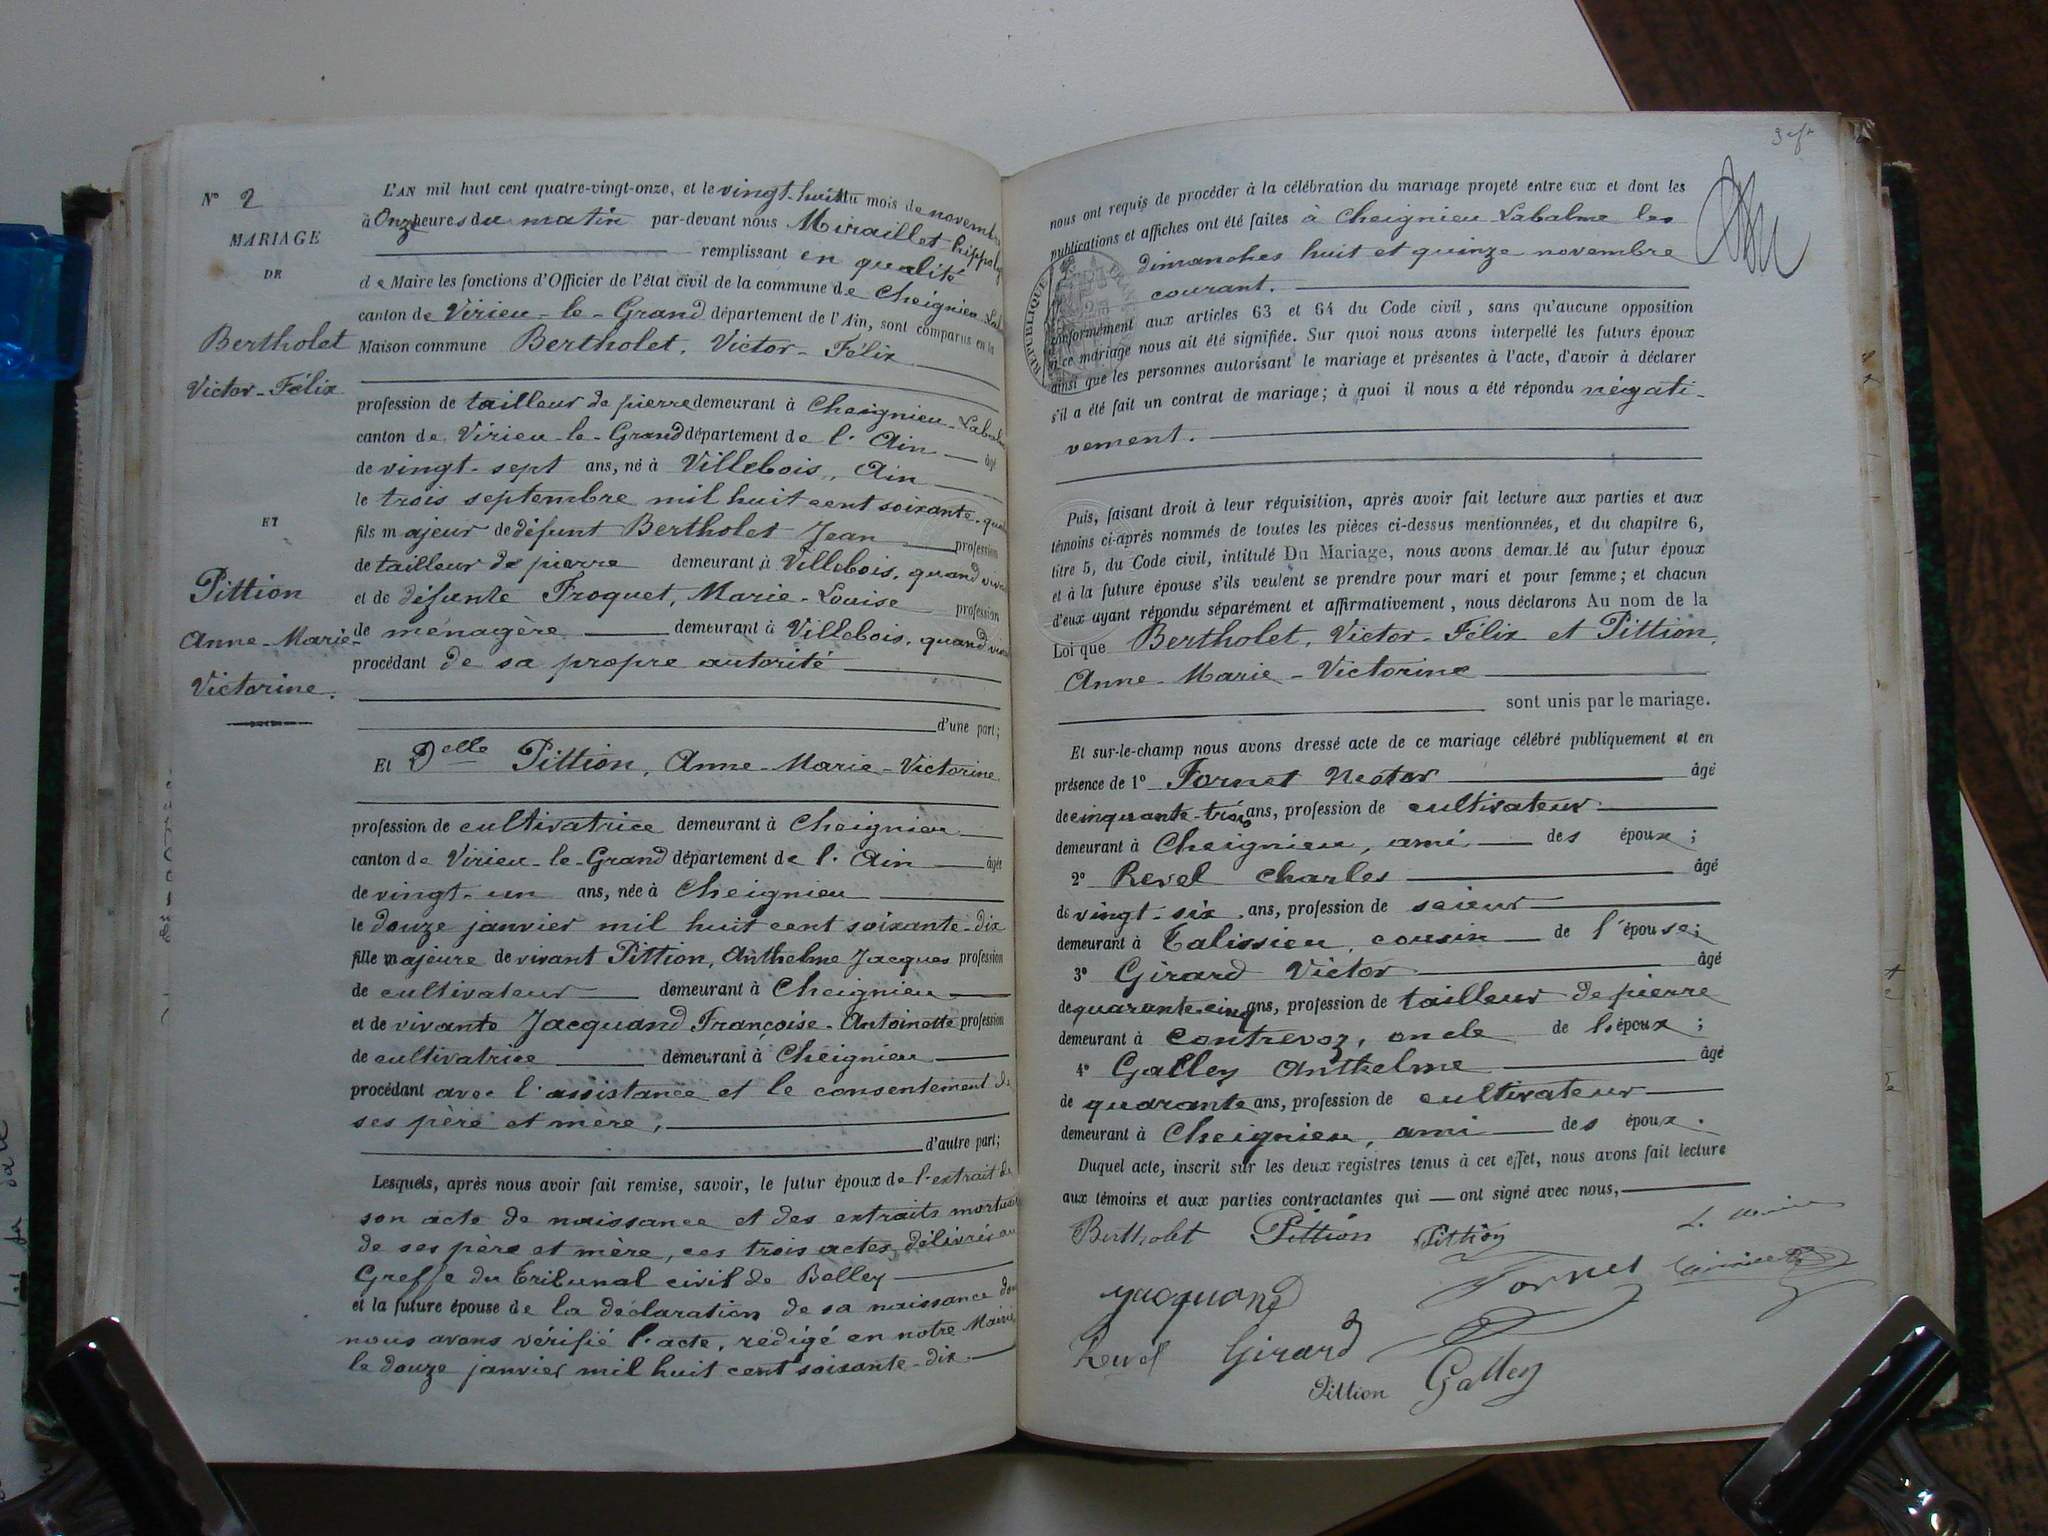 N° 2
MARIAGE
DE
Bertholet
Victor-Félix
ET
Pittion
Anne-Marie-
Victorine.
L'AN mil huit cent quatre-vingt-onze, et le vingt-huit du mois de novembre
à Onze heures du matin par-devant nous Miraillet hippoly
remplissant en qualité
de Maire les fonctions d'Officier de l'état civil de la commune de Cheignieu Lab
canton de Virieu-le-Grand département de l'Ain, sont comparus en la
Maison commune Bertholet, Victor-Félix
profession de tailleur de pierre demeurant à Cheignieu-Labalme
canton de Virieu-le-Grand département de l'Ain âgé
de vingt-sept ans, né à Villebois, Ain
le trois septembre mil huit cent soixante-quat
fils majeur de défunt Bertholet Jean profession
de tailleur de pierre demeurant à Villebois, quand viva
et de défunte Froquet, Marie-Louise profession
de ménagère demeurant à Villebois, quand viva
procédant de sa propre autorité
d'une part;
Et Delle Pittion, Anne-Marie-Victorine
profession de cultivatrice demeurant à Cheignieu
canton de Virieu-le-Grand département de l'Ain âgée
de vingt-un ans, née à Cheignieu
le douze janvier mil huit cent soixante-dix
fille majeure de vivant Pittion, Anthelme Jacques profession
de cultivateur demeurant à Cheignieu
et de vivante Jacquand Françoise-Antoinette profession
de cultivatrice demeurant à Cheignieu
procédant avec l'assistance et le consentement de
ses père et mère,
d'autre part;
Lesquels, après nous avoir fait remise, savoir, le futur époux de l'extrait de
son acte de naissance et des extraits mortuai
de ses père et mère, ces trois actes délivrés au
Greffe du Tribunal civil de Belley
et la future épouse de la déclaration de sa naissance don
nous avons vérifié l'acte, rédigé en notre Mairie
le douze janvier mil huit cent soixante-dix
nous ont requis de procéder à la célébration du mariage projeté entre eux et dont les
publications et affiches ont été faites à Cheignieu Labalme les
dimanches huit et quinze novembre
courant.
RÉPUBLIQUE
conformément aux articles 63 et 64 du Code civil, sans qu'aucune opposition
à ce mariage nous ait été signifiée. Sur quoi nous avons interpellé les futurs époux
ainsi que les personnes autorisant le mariage et présentes à l'acte, d'avoir à déclarer
s'il a été fait un contrat de mariage; à quoi il nous a été répondu négati-
vement.
Puis, faisant droit à leur réquisition, après avoir fait lecture aux parties et aux
témoins ci-après nommés de toutes les pièces ci-dessus mentionnées, et du chapitre 6,
titre 5, du Code civil, intitulé Du Mariage, nous avons demandé au futur époux
et à la future épouse s'ils veulent se prendre pour mari et pour femme; et chacun
d'eux ayant répondu séparément et affirmativement, nous déclarons Au nom de la
Loi que Bertholet, Victor-Félix et Pittion,
Anne-Marie-Victorine
sont unis par le mariage.
Et sur-le-champ nous avons dressé acte de ce mariage célébré publiquement et en
présence de 1° Fornet Nestor âgé
de cinquante-trois ans, profession de cultivateur
demeurant à Cheignieu, ami des époux;
2° Revel Charles âgé
de vingt-six ans, profession de scieur
demeurant à Talissieu, cousin de l'épouse;
3° Girard Victor âgé
de quarante-cinq ans, profession de tailleur de pierre
demeurant à Contrevoz, oncle de l'époux;
4° Galley Anthelme âgé
de quarante ans, profession de cultivateur
demeurant à Cheignieu, ami des époux.
Duquel acte, inscrit sur les deux registres tenus à cet effet, nous avons fait lecture
aux témoins et aux parties contractantes qui ont signé avec nous,
Bertholet Pittion Pittion
Jacquand Fornet
Revel Girard
Pittion Galley